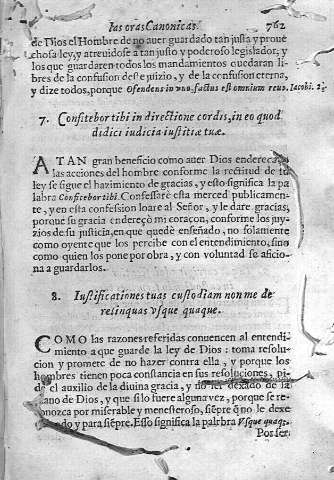 las oras Canonicas. 762
de Dios el Hombre de no auer guardado tan justa y proue
chosa ley, y atreuidose a tan justo y poderoso legislador, y
los que guardaren todos los mandamientos quedaran li
bres de la confusion deste juizio, y de la confusion eterna,
y dize todos, porque Ofendens in vno, factus est omnium reus, Iacobi. 2.
7. Confitebor tibi in directione cordis, in eo quod
didici iudicia iustitiæ tuæ.
A TAN gran beneficio como auer Dios endereçado
las acciones del hombre conforme la rectitud de su
ley se sigue el hazimiento de gracias, y esto significa la pa
labra Confitebor tibi. Confessarè esta merced publicamen-
te, y en esta confession loare al Señor, y le dare gracias,
porque su gracia endereçò mi coraçon, conforme los juy-
zios de su justicia, en que quedè enseñado, no solamente
como oyente que los percibe con el entendimiento, sino
como quien los pone por obra, y con voluntad se aficio-
na a guardarlos.
8. Iustificationes tuas custodiam non me de
relinquas vsque quaque.
COMO las razones referidas conuencen al entendi-
miento a que guarde la ley de Dios: toma resolu-
cion y promete de no hazer contra ella, y porque los
hombres tienen poca constancia en sus resoluciones, pi-
de el auxilio de la diuina gracia, y no ser dexado de la
mano de Dios, y que si lo fuere alguna vez, porque se re-
conozca por miserable y menesteroso, siẽpre q̃ no le dexe
y para siẽpre. Esso significa la palabra Vsque quaq;.
Por ser